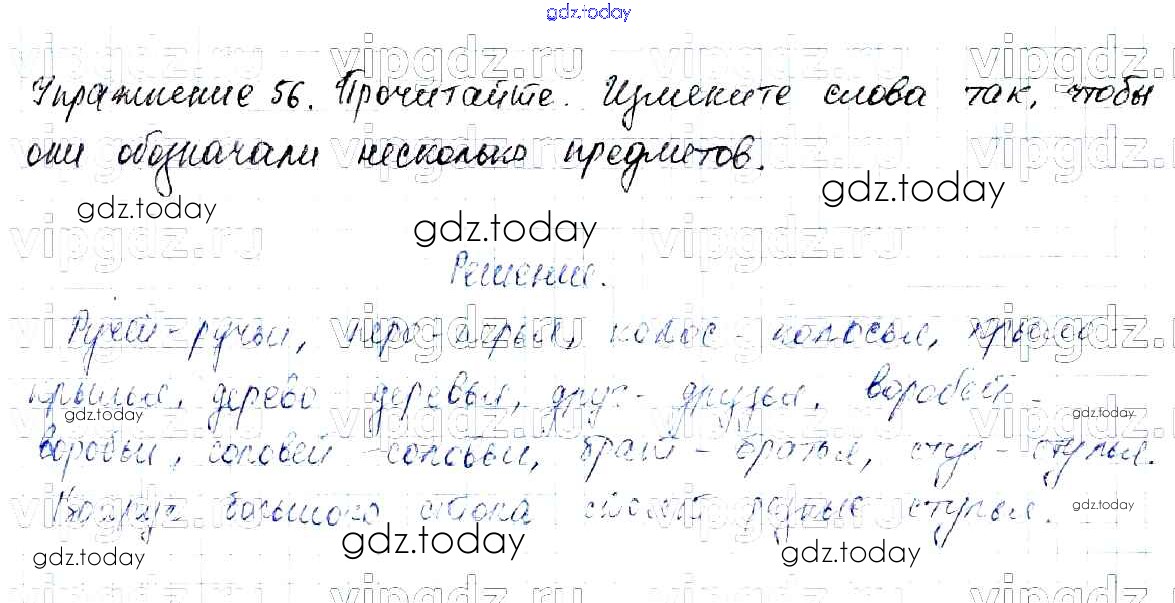 gdz.today
Упражнение 56. Прочитайте. Измените слова так, чтобы
они обозначали несколько предметов.
gdz.today
gdz.today
gdz.today
Решение.
Ручей - ручьи, перо - перья, колос - колосья, крыло -
крылья, дерево - деревья, друг - друзья, воробей -
gdz.today
gdz.today
воробьи, соловей - соловьи, брат - братья, стул - стулья.
Вокруг большого стола стоят стулья.
gdz.today
gdz.today
gdz.today
gdz.today
vipgdz.ru vipgdz.ru vipgdz.ru vipgdz.ru